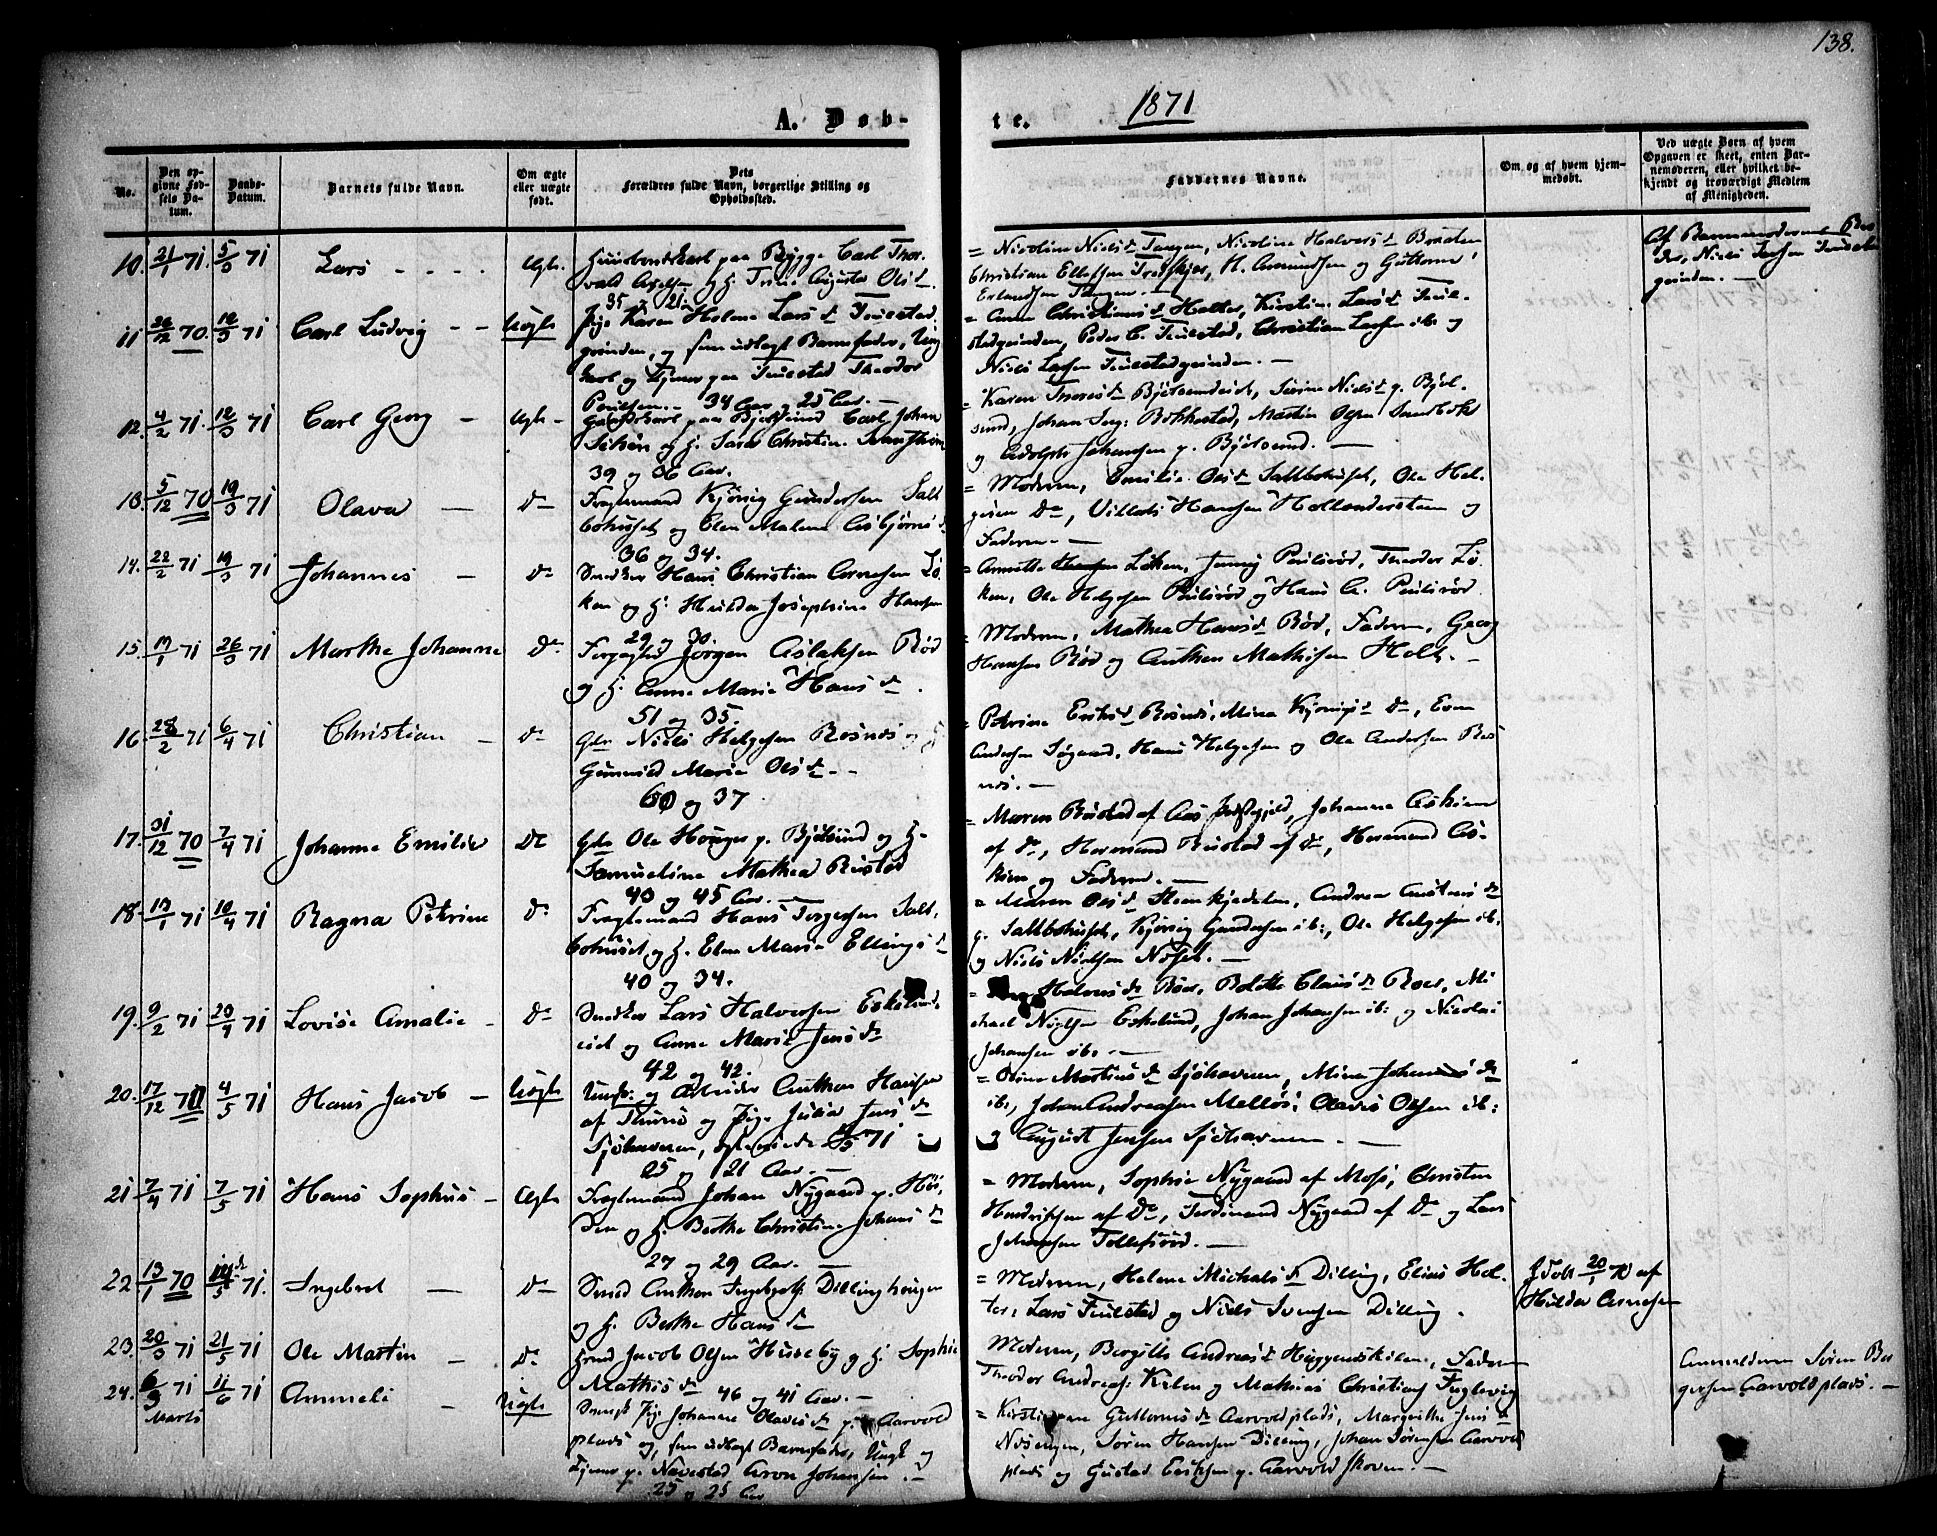 138.
1871
A. Døb-
te.
No.
Den op-
givne Fød-
sels Da-
tum.
Daabs-
Datum.
Barnets fulde Navn.
Om ægte
eller uægte
født.
Dets
Forældres fulde Navn, borgerlige Stilling og
Opholdssted.
Faddernes Navne.
Om og af hvem hjem-
medøbt.
Ved uægte Børn af hvem
Opgaven er skeet, enten Bar-
nemoderen, eller hvilket be-
kjendt og troværdigt Medlem
af Menigheden.
10. 21/1 71. 5/3 71 Lars Ægte. paa Brygge Carl Thor-
vald og h. Trine Augusta Ols d.
35 21.
= Nicoline Niels d Tangen, Nicoline Halvors d
Christian Ellefsen H. Amundsen og Guttorm
Erlandsen Tangen. —
Af Barnemoderens
Niels Larsen
grinden.
11 26/12 70. 12/3 71 Carl Ludvig — Uægte Pige Karen Helene Lars d Tuilestad
grinden, og som udlagt Barnefader, Ung
karl og Tjener paa Tuilestad Theodor
Poulsen. — 34 Aar og 25 Aar. —
= Anne Christians d Holter, Kirstine Lars d
stadgrinden, Peder C. Tuilestad, Christian Larsen ib: og
Niels Larsen Tuilestadgrinden. —
12. 4/2 71. 12/3 71 Carl Georg — Ægte — paa Bjølsund Carl Johan
og h. Sara Christine
39 og 36 Aar.
= Karen Thores d Bjølsundeidet, Niels d p. Bjøl-
sund, Johan Martin Olsen
og Adolph Johansen p. Bjølsund. —
13. 5/12 70 19/3 71 Olava — do Fragtemand Kjønig Gundersen Salt
bohuset og Elen Malene Asbjørns d
36 og 34.
= Moderen, Emilie Ols d Saltbohuset, Ole Hel-
gesen do, Villads Hansen Hollenderstuen og
Faderen. —
14. 22/2 71 19/3 71 Johannes — do Snedker Hans Christian Arnesen Lø
ken og h. Hulda Josephine Hansen
29 og 30.
= Annette Løken, Jenny Poulsrød, Theodor Lø
ken, Ole Helgesen Poulsrød og Hans A. Poulsrød
15. 17/1 71 26/3 71 Marthe Johanne do Jørgen Aslaksen Rød
og h. Anne Marie Hans d
51 og 35.
= Moderen, Mathea Hans d Rød, Faderen, Georg
Hansen Rød og Anthon Mathisen Holt. —
16 28/2 71 6/4 71 Christian — do Gbr Niels Helgesen Rosnes og h
Gunnild Marie Ols d. —
60 og 37
= Petrine Eriks d Rosnes, Mina do, Even
Andersen Søgaard, Hans Helgesen og Ole Andersen Ros
nes. —
17. 31/12 70 7/4 71 Johanne Emilie do Gbr Ole Houger p. Bjølsund og h.
Samueline Mathea Rustad
40 og 45 Aar. —
= Maren Rustad af Aas Johanne Askim
af do, Hermand Rustad af do, Hermand As-
kim og Faderen. —
18. 13/1 71 10/4 71 Ragna Petrine do Fragtemand Hans Torgersen Salt,
bohuset og h. Elen Marie Ellings d
40 og 34.
= Maren Ols d Andrea Anstens d
p. Saltbohuset, Kjønig Gundersen ib:, Ole Helgesen ib:
og Niels Nielsen Nøset. —
19. 9/2 71 20/4 71 Lovise Amalie — do Snedker Lars Halvorsen Eskelund,
eiet og Anne Marie Jens d
42 og 42.
= Halvors d Roer, Bolette Claus d Roer, Mi
chael Nielsen Eskelund, Johan Johansen ib: og Nicolai
Johansen ib: —
20. 17/12 70 4/5 71 Hans Jacob — Uægte Ungk: og Arbeider Anthon Hansen
af og Pige Julie Jens d
Sjøhavnen, 71
25 og 21 Aar. —
= Martins d Sjøhavnen, Mina Johannes d
ib:, Johan Andreasen Melløs, Olavus Olsen ib:
og August Jensen Sjøhavnen. —
21 7/4 71 7/5 71 Hans Sophus — Ægte Fragtemand Johan Nygaard p. Høi,
den og h. Berthe Christine Johans d
27 og 29 Aar. —
= Moderen, Sophie Nygaard af Moss, Christen
Hendriksen af do, Ferdinand Nygaard af do og Lars
Johansen Tollefsrød. —
22 13/1 70 5 71. Ingebret — do Smed Anthon Ingebretsen Dillinghougen
og h. Berthe Hans d
= Moderen, Helene Michals d Dilling, Elias Hol-
ter, Lars Tuilestad og Niels Svensen Dilling.
Idøbt 20/1 70 af
Hulda Arnesen
23. 20/3 71 21/5 71 Ole Martin — do Jacob Olsen Huseby og h. Sophie
Mathis d 46 og 41 Aar. —
Moderen, Bergitte Andreas d Huggenskilen, Faderen
Theodor Andreas: Kilen og Mathias Christians: Fuglevig
24. 6/3 71 11/6 71 Anneli — Uægte Pige Johanne Olavus d p. Aarvold
Marts
plads og, som udlagt Barnefader, Ungk og
Tjener p. Navestad Aron Johansen. —
25 og 25 Aar
= Kirstine Guttorms d Aarvoldplads, Margrethe Jens d
Nøsengen, Søren Hansen Dilling, Johan Sørensen Aarvold
plads og Gustav Eriksen p. Aarvold Skoven. —
Anmelderen Søren Bør
gersen Aarvoldplads. —